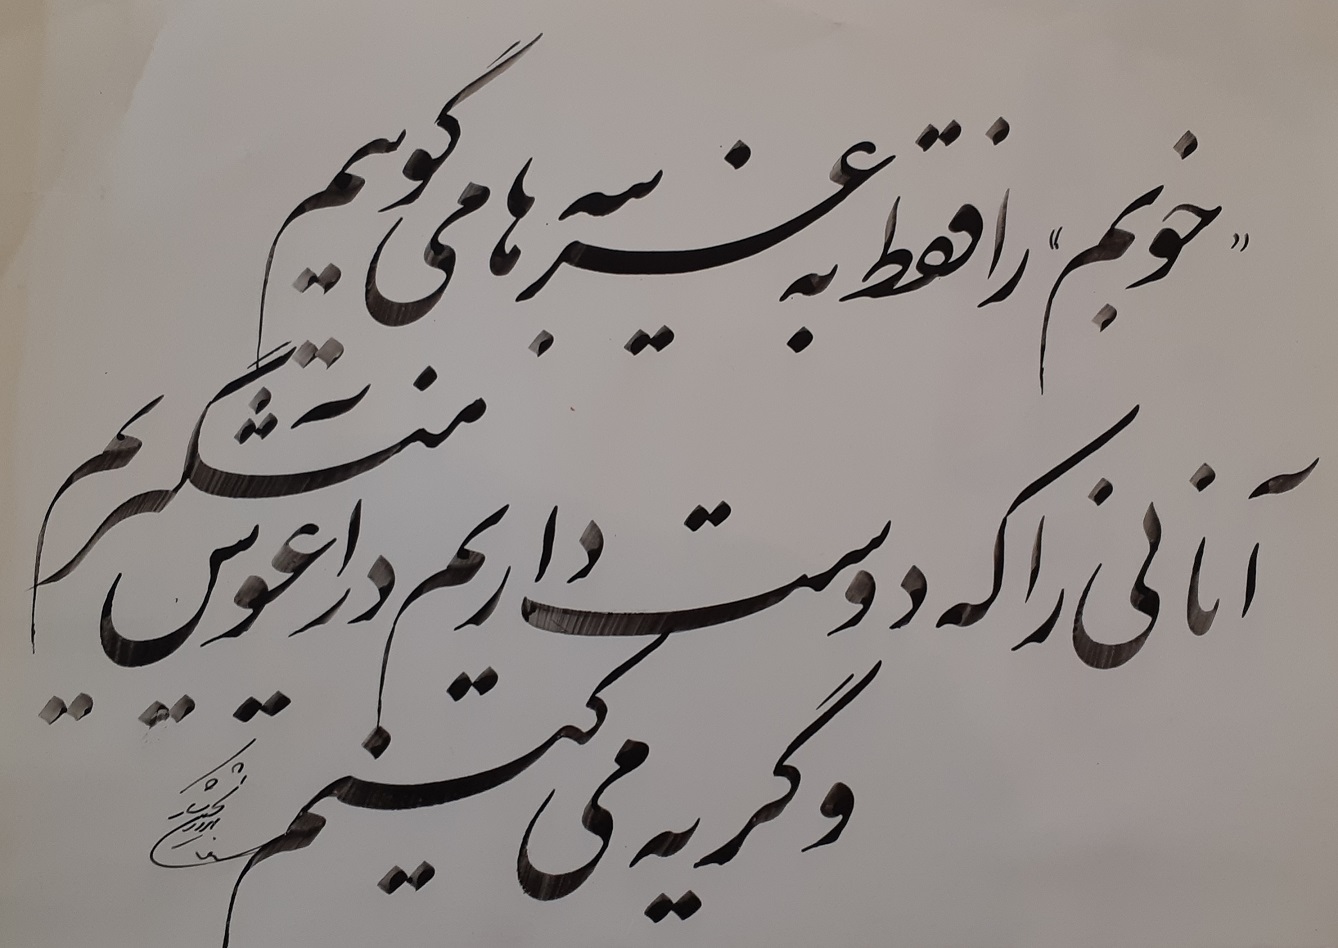 «خوبم» را فقط به غریبه ها می گوییم
آنانی را که دوست داریم در آغوش میگیریم
و گریه می کنیم